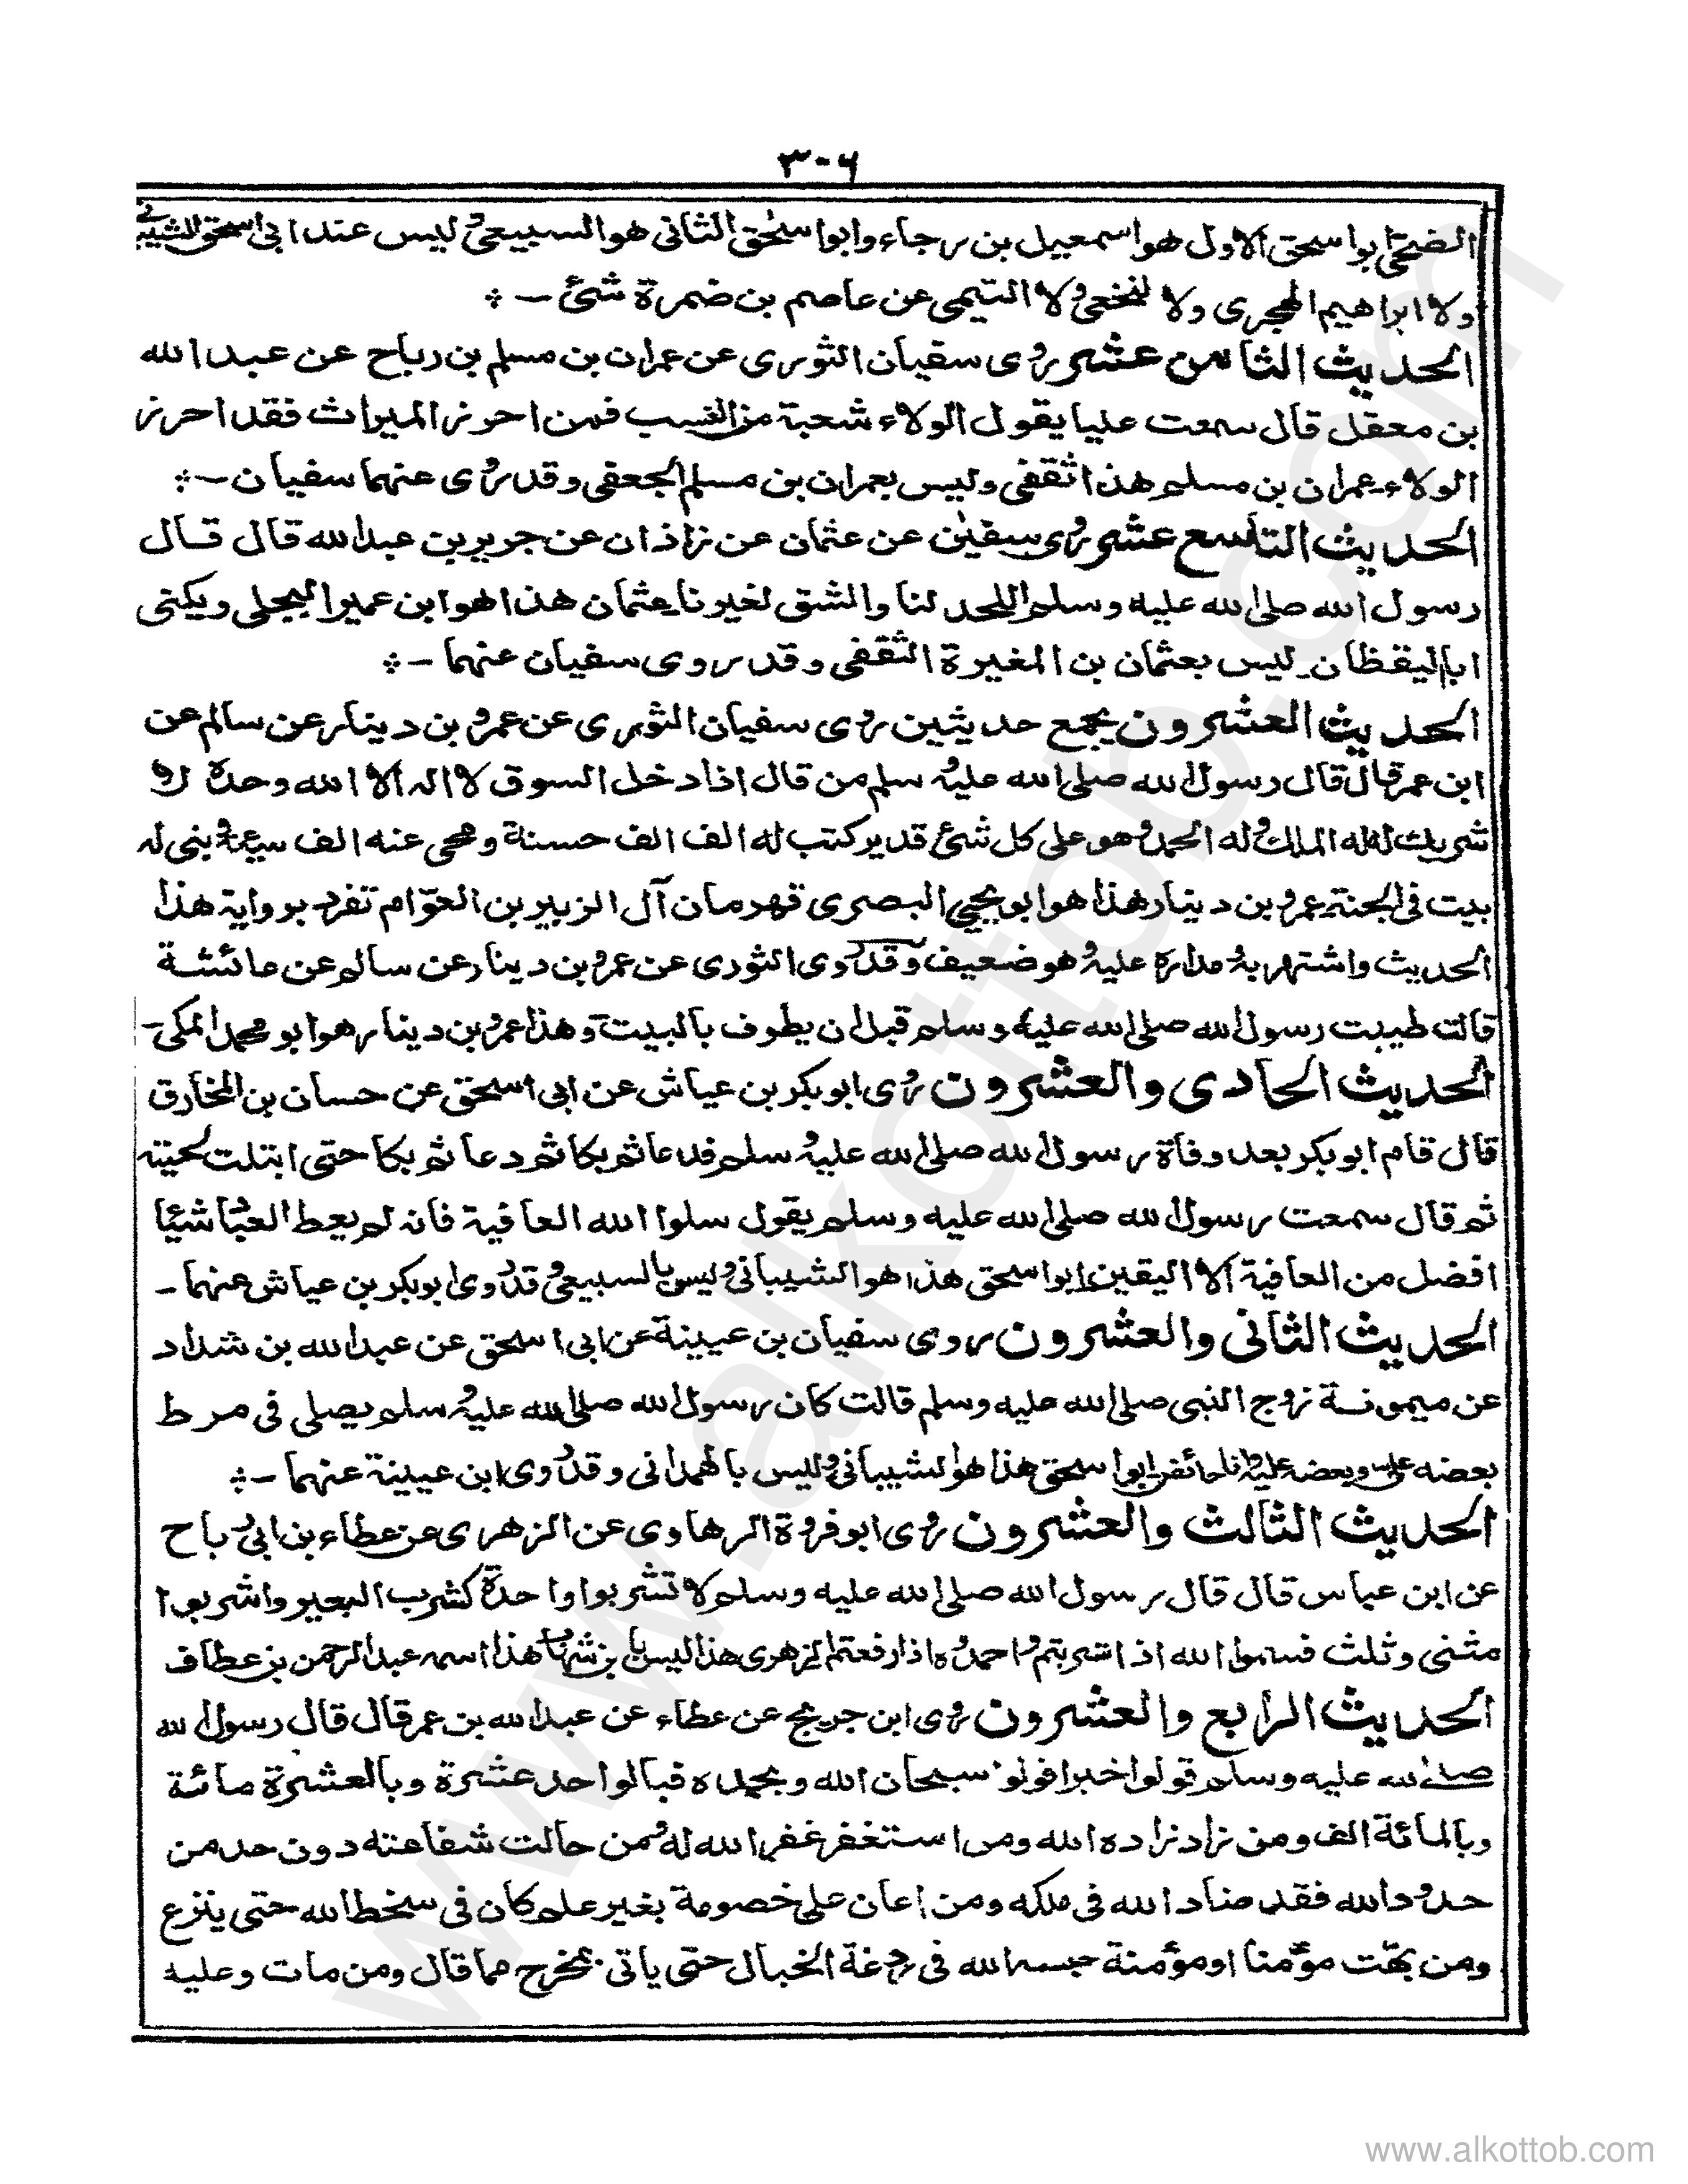 ٣٠٦
الضحى ابو اسحق الاول هو اسمعيل بن رجاء وابو اسحٰق الثانى هو السبيعى وليس عند ابى اسحق الشيبانى
ولا ابراهيم الهجرى ولا النخعى ولا التيمى عن عاصم بن ضمرة شئ ـ
الحديث الثامن عشر روى سفيان الثورى عن عمران بن مسلم بن رباح عن عبد الله
بن معقل قال سمعت عليا يقول الولاء شعبة من النسب فمن احرز الميراث فقد احرز
الولاء ـ عمران بن مسلم هذا ثقفى وليس بعمران بن مسلم الجعفى وقد روى عنهما سفيان ـ
الحديث التاسع عشر روى سفيٰن عن عثمان عن زاذان عن جرير بن عبد الله قال قال
رسول الله صلى الله عليه وسلم اللحد لنا والشق لغيرنا ـ عثمان هذا هو ابن عمير البجلى ويكنى
ابا اليقظان ـ ليس بعثمان بن المغيرة الثقفى وقد روى سفيان عنهما ـ
الحديث العشرون يجمع حديثين روى سفيان الثورى عن عمرو بن دينار عن سالم عن
ابن عمر قال قال رسول الله صلى الله عليه وسلم من قال اذا دخل السوق لا اله الا الله وحده لا
شريك له له الملك وله الحمد وهو على كل شئ قدير كتب له الف الف حسنة ومحى عنه الف سيئة وبنى له
بيت فى الجنة ـ عمرو بن دينار هذا هو ابو يحيى البصرى قهرمان آل الزبير بن العوّام تفرد برواية هذا
الحديث واشتهر به ومداره عليه وهو ضعيف وقد روى الثورى عن عمرو بن دينار عن سالم عن عائشة
قالت طيبت رسول الله صلى الله عليه وسلم قبل ان يطوف بالبيت وهذا عمرو بن دينار هو ابو محمد المكى ـ
الحديث الحادى والعشرون روى ابو بكر بن عياش عن ابى اسحٰق عن حسان بن المخارق
قال قام ابو بكر بعد وفاة رسول الله صلى الله عليه وسلم فدعا ثم بكا ثم دعا ثم بكا حتى ابتلت لحيته
ثم قال سمعت رسول الله صلى الله عليه وسلم يقول سلوا الله العافية فانه لم يعط العباد شيئا
افضل من العافية الا اليقين ـ ابو اسحق هذا هو الشيبانى وليس بالسبيعى وقد روى ابو بكر بن عياش عنهما ـ
الحديث الثانى والعشرون روى سفيان بن عيينة عن ابى اسحق عن عبد الله بن شداد
عن ميمونة زوج النبى صلى الله عليه وسلم قالت كان رسول الله صلى الله عليه وسلم يصلى فى مرط
بعضه على وبعضه عليه وانا حائض ـ ابو اسحق هذا هو الشيبانى وليس بالهمدانى وقد روى ابن عيينة عنهما ـ
الحديث الثالث والعشرون روى ابو فروة الرهاوى عن الزهرى عن عطاء بن ابى رباح
عن ابن عباس قال قال رسول الله صلى الله عليه وسلم لا تشربوا واحدة كشرب البعير واشربوا
مثنى وثلث فسموا الله اذا شربتم واحمدوه اذا رفعتم الزهرى هذا ليس بابن شهاب هذا اسمه عبد الرحمن بن عطاف
الحديث الرابع والعشرون روى ابن جريج عن عطاء عن عبد الله بن عمر قال قال رسول الله
صلى الله عليه وسلم قولوا خيرا قولوا سبحان الله وبحمده فبالواحد عشرة وبالعشرة مائة
وبالمائة الف ومن زاد زاده الله ومن استغفر غفر الله له ومن حالت شفاعته دون حد من
حدود الله فقد ضاد الله فى ملكه ومن اعان على خصومة بغير علم كان فى سخط الله حتى ينزع
ومن بهت مؤمنا او مؤمنة حبسه الله فى ردغة الخبال حتى ياتى بمخرج مما قال ومن مات وعليه
www.alkottob.com
www.alkottob.com